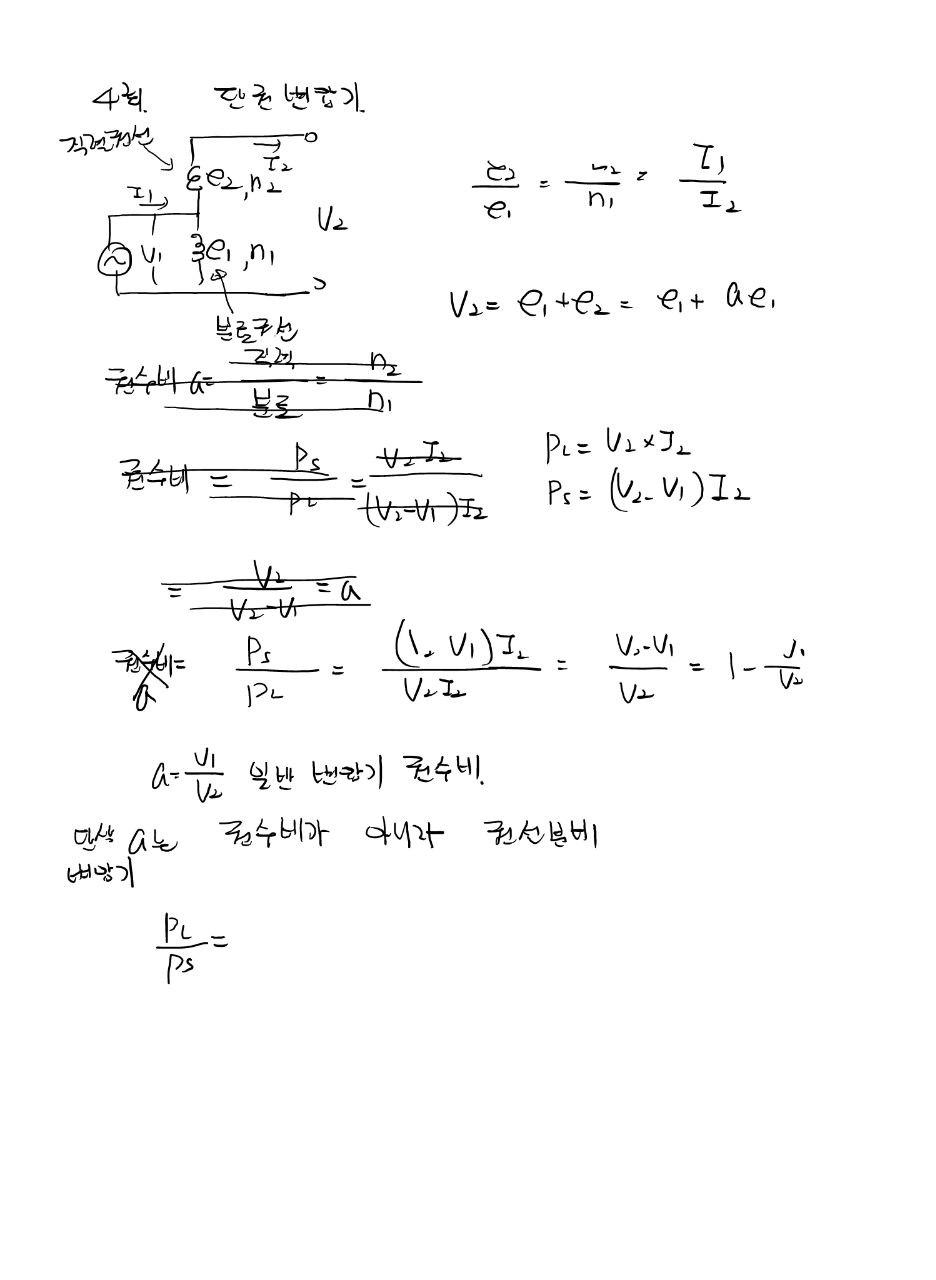 4회. 단권 변압기.
직렬권선
I2
e2, n2
I1
V2
V1 e1, n1
분로권선
e2/e1 = n2/n1 = I1/I2
V2 = e1 + e2 = e1 + ae1
권수비 a = 직렬/분로 = n2/n1
권수비 = Ps/PL = V2 I2/(V2-V1)I2
PL = V2 × I2
Ps = (V2 - V1) I2
= V2/V2-V1 = a
권수비 = Ps/PL = (V2 V1)I2/V2I2 = V2-V1/V2 = 1 - V1/V2
a
a = V1/V2 일반 변압기 권수비.
a는 권수비가 아니라 권선분비
변압기
PL/Ps =